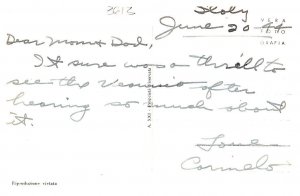 3612
Italy
June 20 44
VERA
Dear Mom & Dad,
It sure was a thrill to
see the Vesuvio after
hearing so much about
it.
Love
Carmelo
Riproduzione vietata